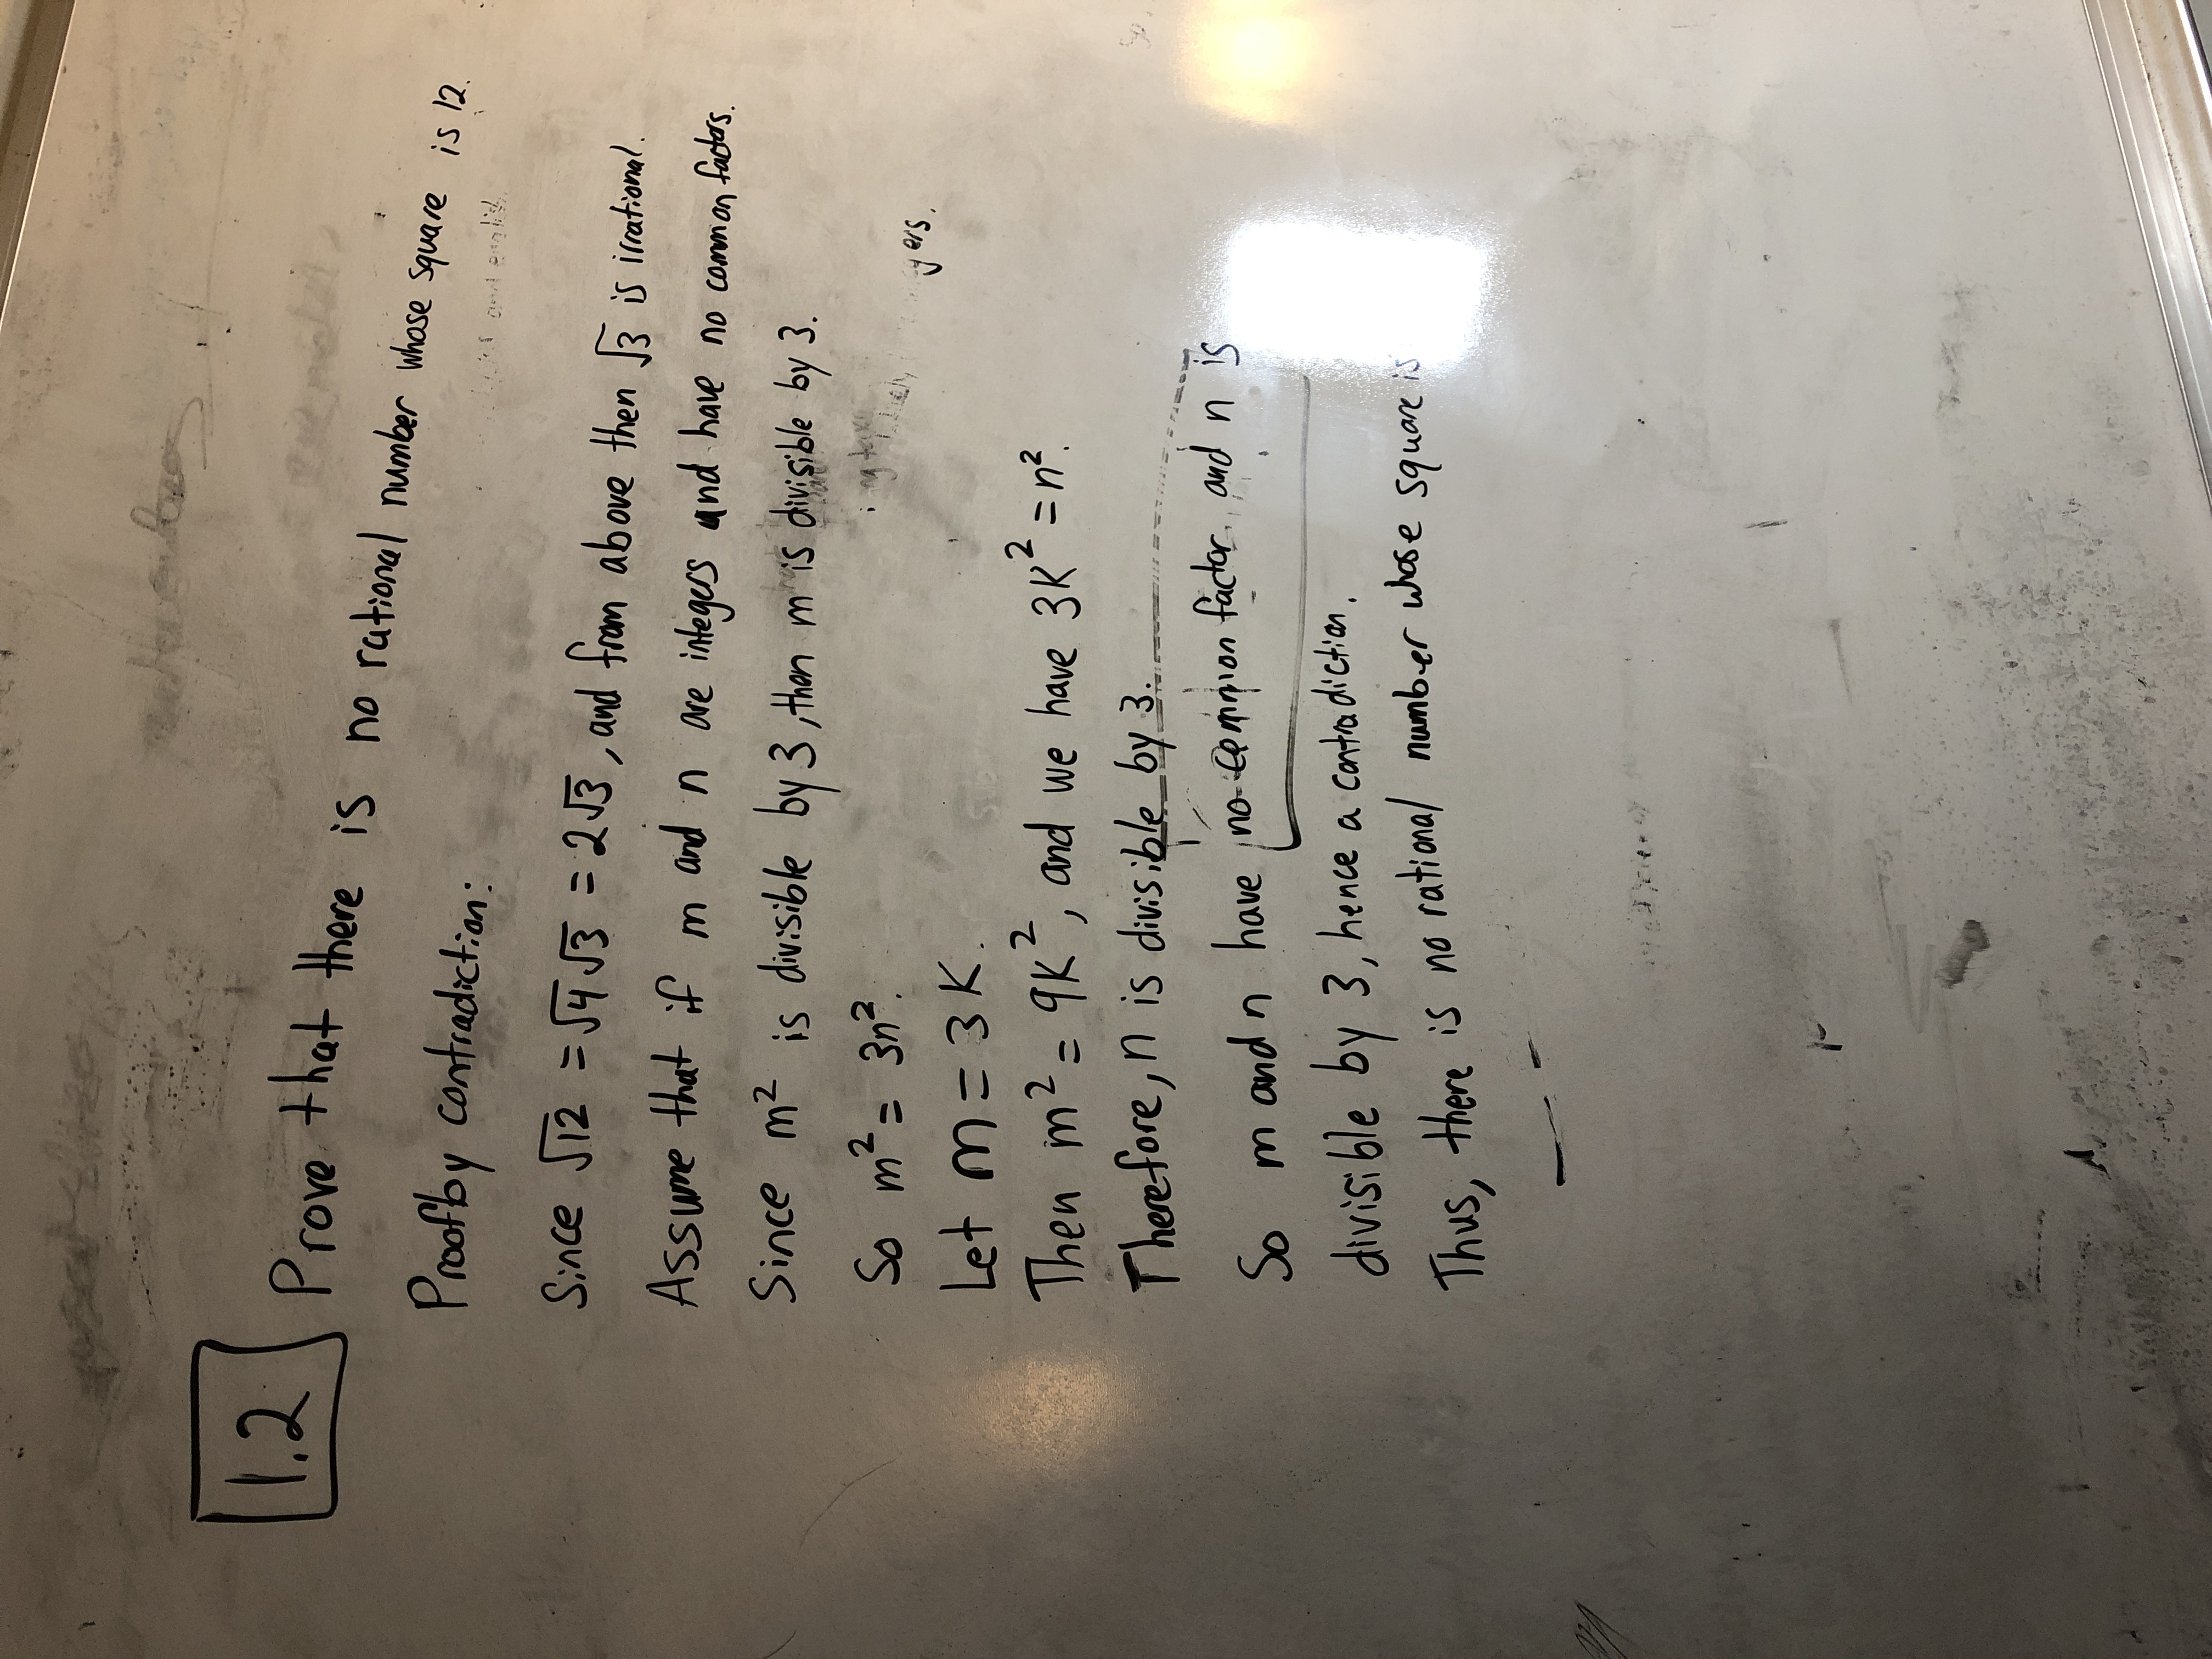 1.2
Prove that there is no rational number whose square is 12.
Proof by contradiction:
Since √12 = √4 √3 = 2√3, and from above then √3 is irrational.
Assume that if m and n are integers and have no common factors.
Since m² is divisible by 3, then m is divisible by 3.
So m² = 3n².
Let m = 3K.
Then m² = 9K², and we have 3K² = n².
Therefore, n is divisible by 3.
So m and n have no common factor and n is
divisible by 3, hence a contradiction.
Thus, there is no rational number whose square is